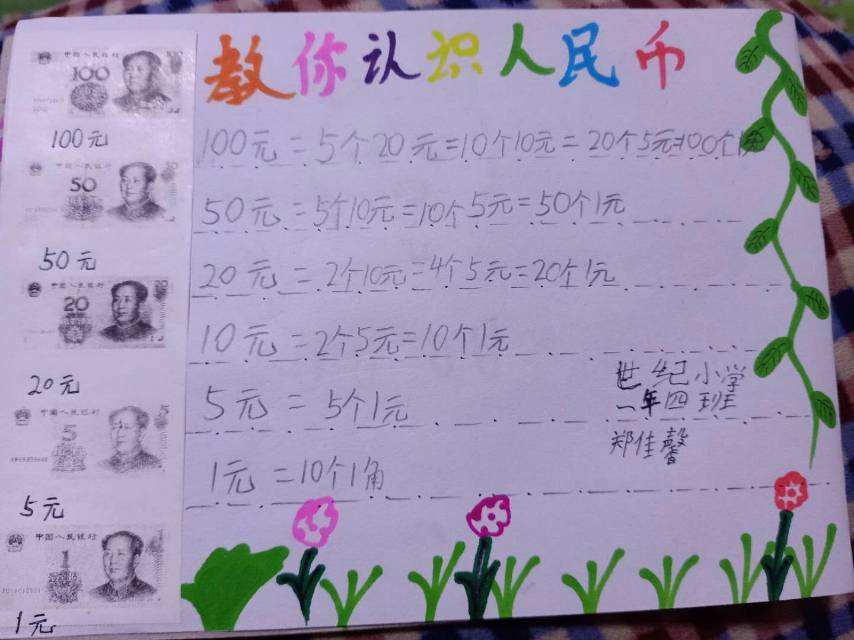 教你认识人民币
中国人民银行
100
100元
50
50元
中国人民银行
20
20元
中国人民银行
5
5元
中国人民银行
1
1元
100元=5个20元=10个10元=20个5元=100个1元
50元=5个10元=10个5元=50个1元
20元=2个10元=4个5元=20个1元
10元=2个5元=10个1元
5元=5个1元
1元=10个1角
世纪小学
一年四班
郑佳馨